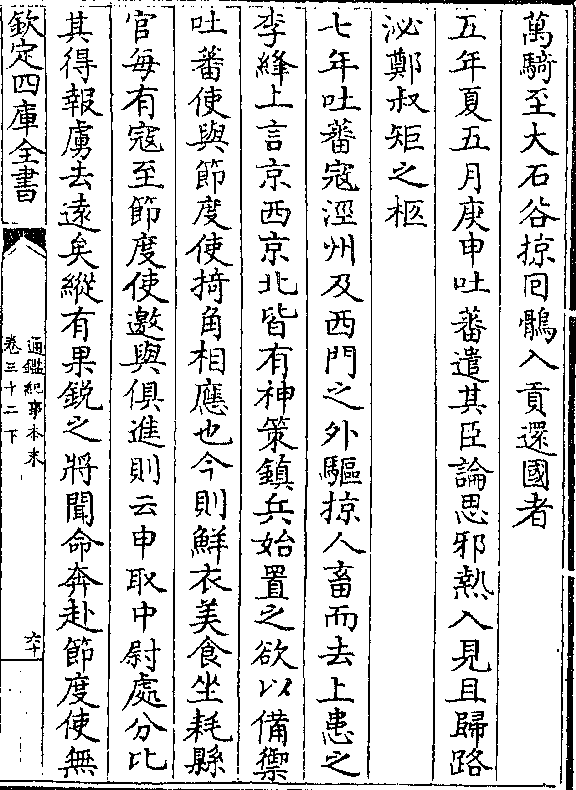 萬騎至大石谷掠囘鶻入貢還國者
五年夏五月庚申吐蕃遣其臣論思邪熱入見且歸路
泌鄭叔矩之柩
七年吐蕃寇涇州及西門之外驅掠人畜而去上患之
李絳上言京西京北皆有神策鎮兵始置之欲以備禦
吐蕃使與節度使掎角相應也今則鮮衣美食坐耗縣
官毎有寇至節度使邀與俱進則云申取中尉處分比
其得報虜去遠矣縱有果鋭之將聞命奔赴節度使無
欽定四庫全書
通鑑紀事本末
卷三十二下
六十